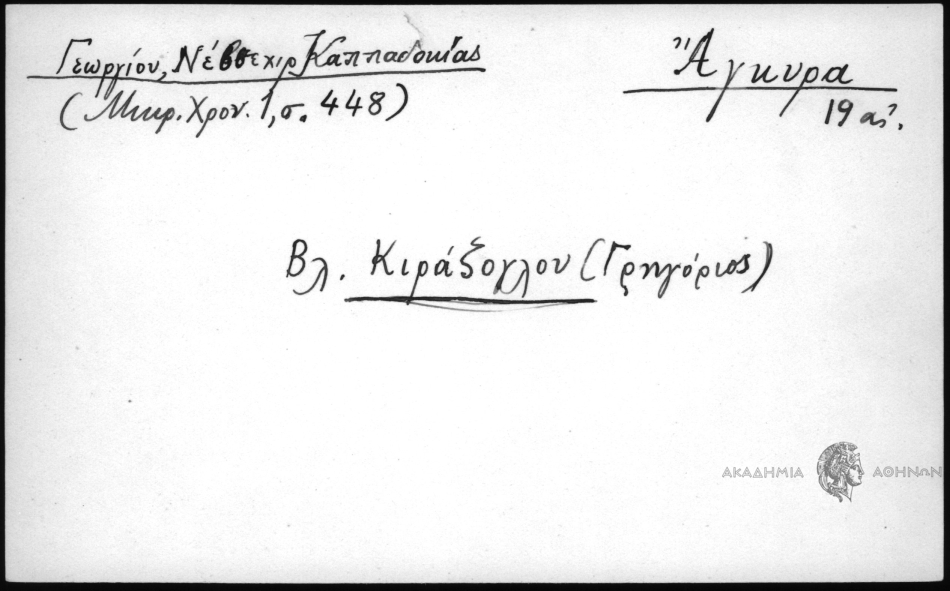 Γεωργίου, Νέβσεχιρ Καππαδοκίας
(Μικρ. Χρον. 1, σ. 448)
Ἄγκυρα
19 αἰ.
Βλ. Κιράξογλου (Γρηγόριος)
ΑΚΑΔΗΜΙΑ ΑΘΗΝΩΝ